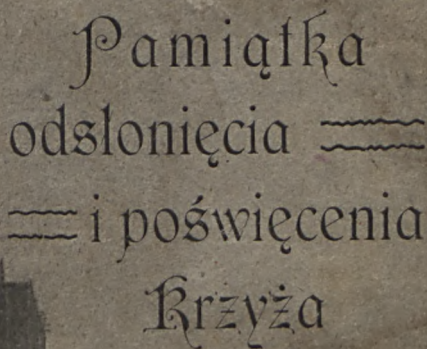 Pamiątka
odsłonięcia
i poświęcenia
Krzyża